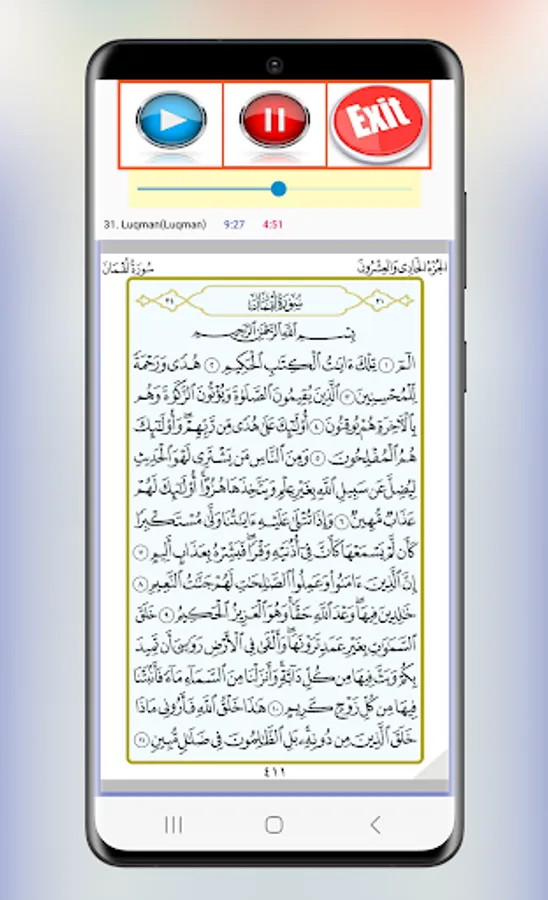 Exit
31. Luqman(Luqman) 9:27 4:51
سُورَةُ لُقْمَانَ الجُزْءُ الحَادِي وَالعِشْرُونَ
٣٤ سُورَةُ لُقْمَانَ ٣١
بِسْمِ ٱللَّهِ ٱلرَّحْمَٰنِ ٱلرَّحِيمِ
الٓمٓ ١ تِلْكَ ءَايَٰتُ ٱلْكِتَٰبِ ٱلْحَكِيمِ ٢ هُدًى وَرَحْمَةً
لِّلْمُحْسِنِينَ ٣ ٱلَّذِينَ يُقِيمُونَ ٱلصَّلَوٰةَ وَيُؤْتُونَ ٱلزَّكَوٰةَ وَهُم
بِٱلْأٓخِرَةِ هُمْ يُوقِنُونَ ٤ أُو۟لَٰٓئِكَ عَلَىٰ هُدًى مِّن رَّبِّهِمْ وَأُو۟لَٰٓئِكَ
هُمُ ٱلْمُفْلِحُونَ ٥ وَمِنَ ٱلنَّاسِ مَن يَشْتَرِى لَهْوَ ٱلْحَدِيثِ
لِيُضِلَّ عَن سَبِيلِ ٱللَّهِ بِغَيْرِ عِلْمٍ وَيَتَّخِذَهَا هُزُوًا أُو۟لَٰٓئِكَ لَهُمْ
عَذَابٌ مُّهِينٌ ٦ وَإِذَا تُتْلَىٰ عَلَيْهِ ءَايَٰتُنَا وَلَّىٰ مُسْتَكْبِرًا
كَأَن لَّمْ يَسْمَعْهَا كَأَنَّ فِىٓ أُذُنَيْهِ وَقْرًا فَبَشِّرْهُ بِعَذَابٍ أَلِيمٍ ٧
إِنَّ ٱلَّذِينَ ءَامَنُوا۟ وَعَمِلُوا۟ ٱلصَّٰلِحَٰتِ لَهُمْ جَنَّٰتُ ٱلنَّعِيمِ ٨
خَٰلِدِينَ فِيهَا وَعْدَ ٱللَّهِ حَقًّا وَهُوَ ٱلْعَزِيزُ ٱلْحَكِيمُ ٩ خَلَقَ
ٱلسَّمَٰوَٰتِ بِغَيْرِ عَمَدٍ تَرَوْنَهَا وَأَلْقَىٰ فِى ٱلْأَرْضِ رَوَٰسِىَ أَن تَمِيدَ
بِكُمْ وَبَثَّ فِيهَا مِن كُلِّ دَآبَّةٍ وَأَنزَلْنَا مِنَ ٱلسَّمَآءِ مَآءً فَأَنۢبَتْنَا
فِيهَا مِن كُلِّ زَوْجٍ كَرِيمٍ ١٠ هَٰذَا خَلْقُ ٱللَّهِ فَأَرُونِى مَاذَا
خَلَقَ ٱلَّذِينَ مِن دُونِهِۦ بَلِ ٱلظَّٰلِمُونَ فِى ضَلَٰلٍ مُّبِينٍ ١١
٤١١